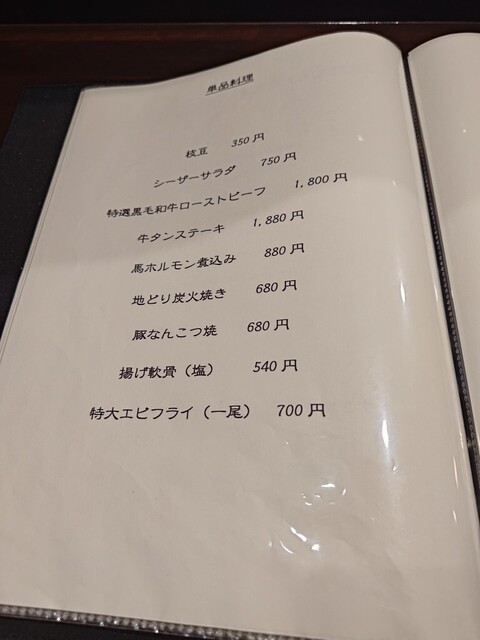 単品料理
枝豆 350円
シーザーサラダ 750円
特選黒毛和牛ローストビーフ 1,800円
牛タンステーキ 1,880円
馬ホルモン煮込み 880円
地どり炭火焼き 680円
豚なんこつ焼 680円
揚げ軟骨（塩） 540円
特大エビフライ（一尾） 700円